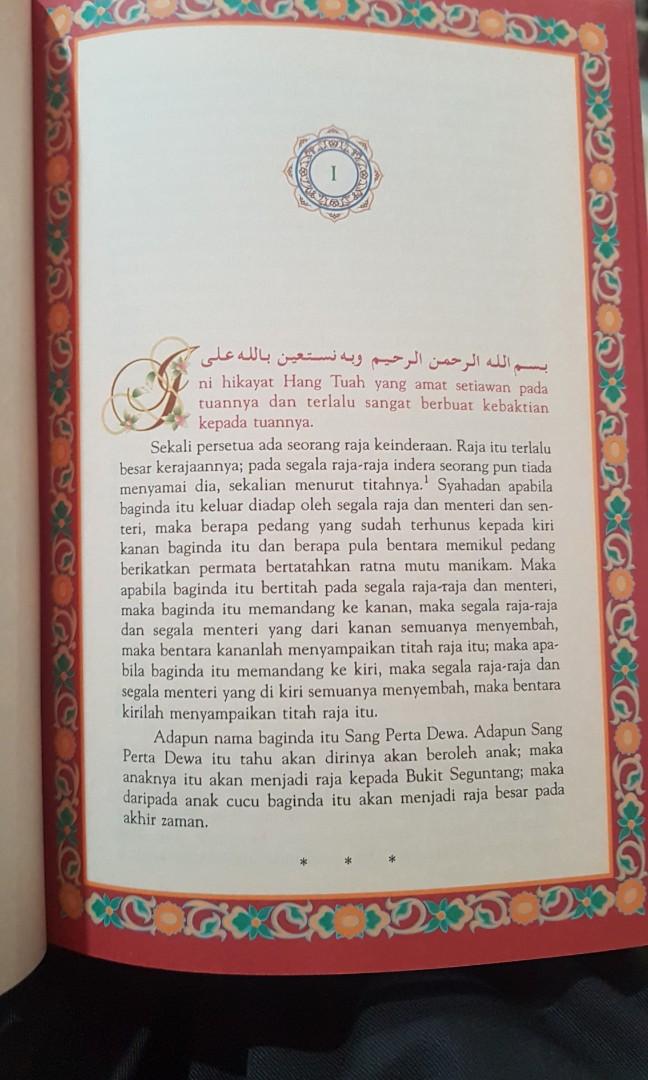 I
بسم الله الرحمن الرحيم وبه نستعين بالله على
Ini hikayat Hang Tuah yang amat setiawan pada
tuannya dan terlalu sangat berbuat kebaktian
kepada tuannya.
Sekali persetua ada seorang raja keinderaan. Raja itu terlalu
besar kerajaannya; pada segala raja-raja indera seorang pun tiada
menyamai dia, sekalian menurut titahnya.¹ Syahadan apabila
baginda itu keluar diadap oleh segala raja dan menteri dan sen-
teri, maka berapa pedang yang sudah terhunus kepada kiri
kanan baginda itu dan berapa pula bentara memikul pedang
berikatkan permata bertatahkan ratna mutu manikam. Maka
apabila baginda itu bertitah pada segala raja-raja dan menteri,
maka baginda itu memandang ke kanan, maka segala raja-raja
dan segala menteri yang dari kanan semuanya menyembah,
maka bentara kananlah menyampaikan titah raja itu; maka apa-
bila baginda itu memandang ke kiri, maka segala raja-raja dan
segala menteri yang di kiri semuanya menyembah, maka bentara
kirilah menyampaikan titah raja itu.
Adapun nama baginda itu Sang Perta Dewa. Adapun Sang
Perta Dewa itu tahu akan dirinya akan beroleh anak; maka
anaknya itu akan menjadi raja kepada Bukit Seguntang; maka
daripada anak cucu baginda itu akan menjadi raja besar pada
akhir zaman.
* * *